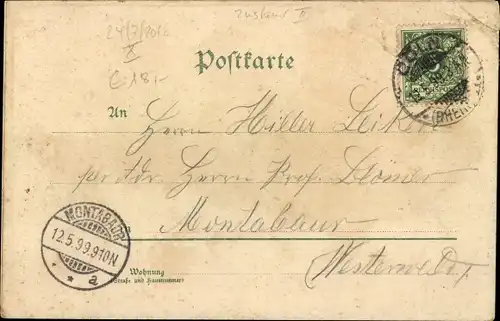 24/7/2010
Zustand II
X
€ 18,-
Postkarte
CÖLN
(RHEIN)
An
Herrn Hiller
per Adr. Herrn Prof.
Montabaur
Westerwald
MONTABAUR
12.5.99.9-10N
* * a
Wohnung
(Straße und Hausnummer)